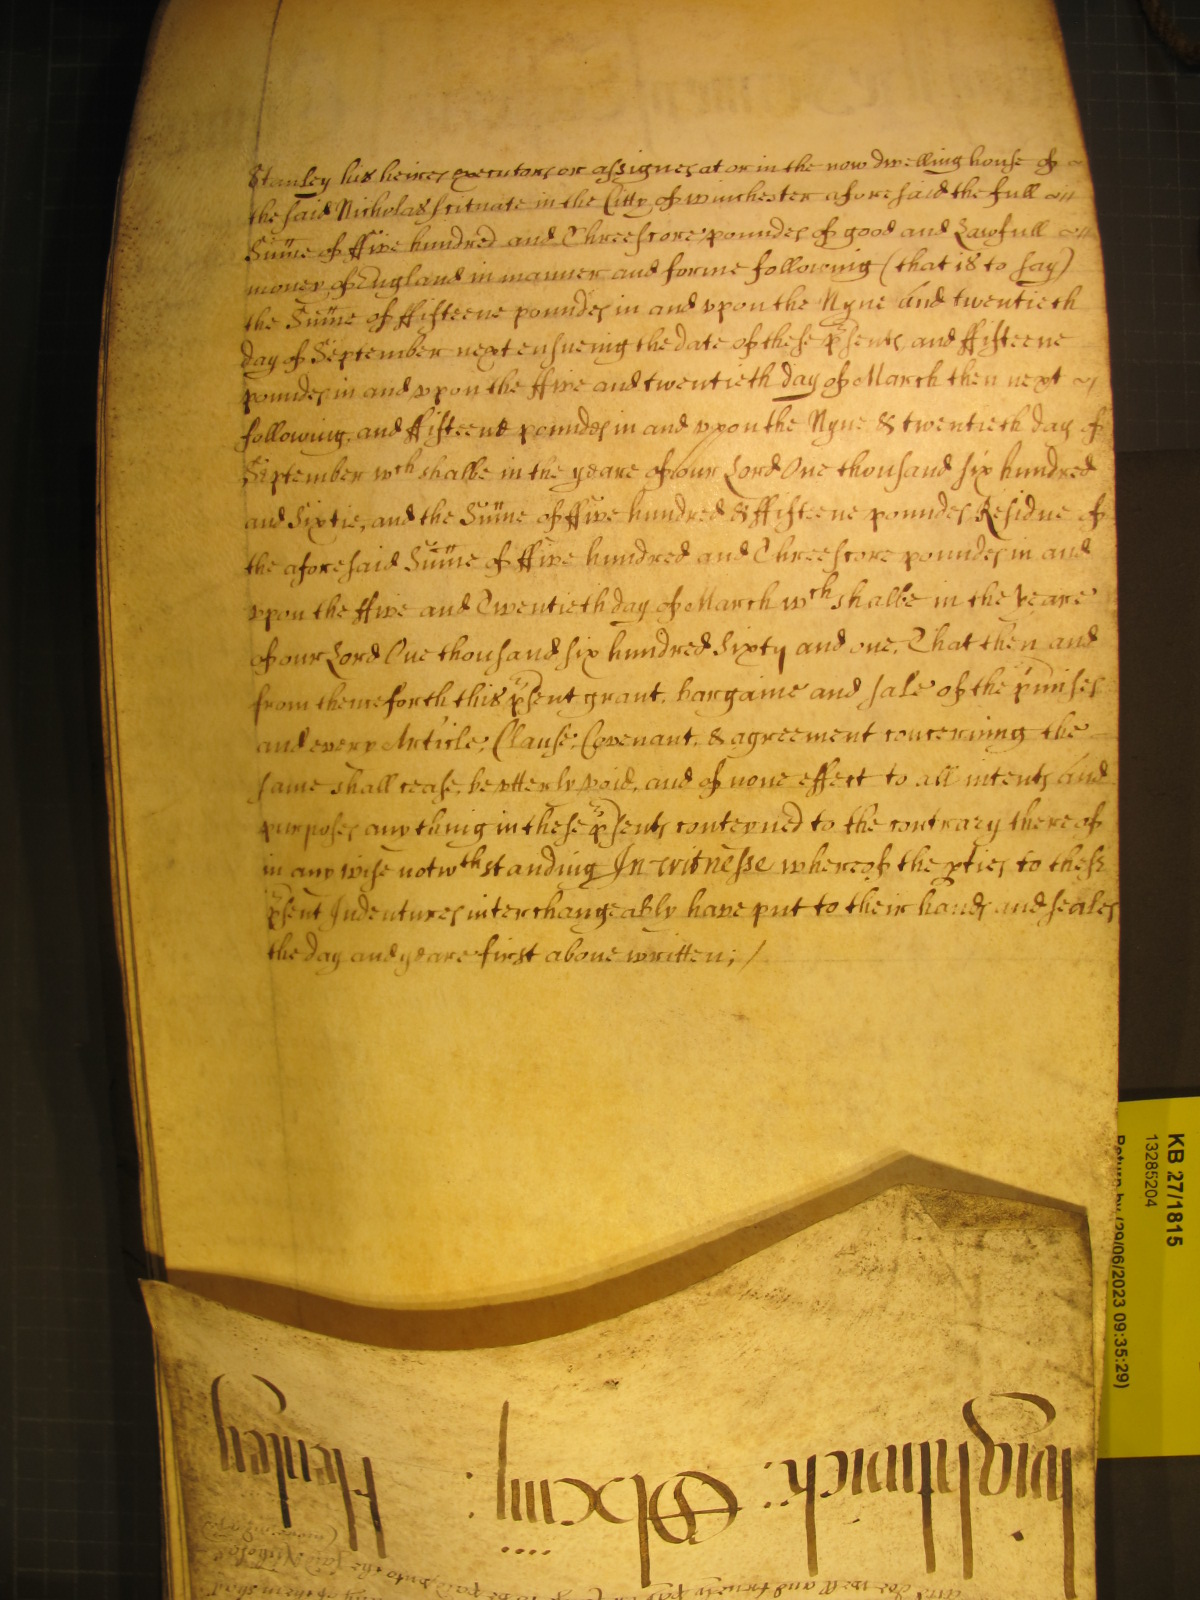 Stanley his heires executors or assignes at or in the now dwelling house of
the said Nicholas scituate in the Citty of winchester aforesaid the full
Sum̃e of ffive hundred and Threescore poundes of good and Lawfull
money of England in manner and forme following (that is to say)
the Sum̃e of ffifteene poundes in and vpon the Nyne and twentieth
day of September next ensueing the date of these p̃sents, and ffifteene
poundes in and vpon the ffive and twentieth day of March then next
following, and ffifteene poundes in and vpon the Nyne & twentieth day of
September wch shalbe in the yeare of our Lord One thousand six hundred
and Sixtie, and the Sum̃e of ffive hundred & ffifteene poundes Residue of
the aforesaid Sum̃e of ffive hundred and Threescore poundes in and
vpon the ffive and Twentieth day of March wch shalbe in the Yeare
of our Lord One thousand six hundred Sixty and one, That then and
from thenceforth this p̃sent grant, bargaine and sale of the p̃mises
and every Article, Clause, Covenant, & agreement concerning the
same shall cease, be vtterly void, and of none effect to all intents and
purposes any thing in these p̃sents conteyned to the contrary thereof
in any wise notwthstanding In witnesse whereof the pties to these
p̃sent Indentures interchangeably have put to their hands and seales
the day and yeare first above written; /
KB 27/1815
13285204
Return by (29/06/2023 09:35:29)
Henley
lxiiij